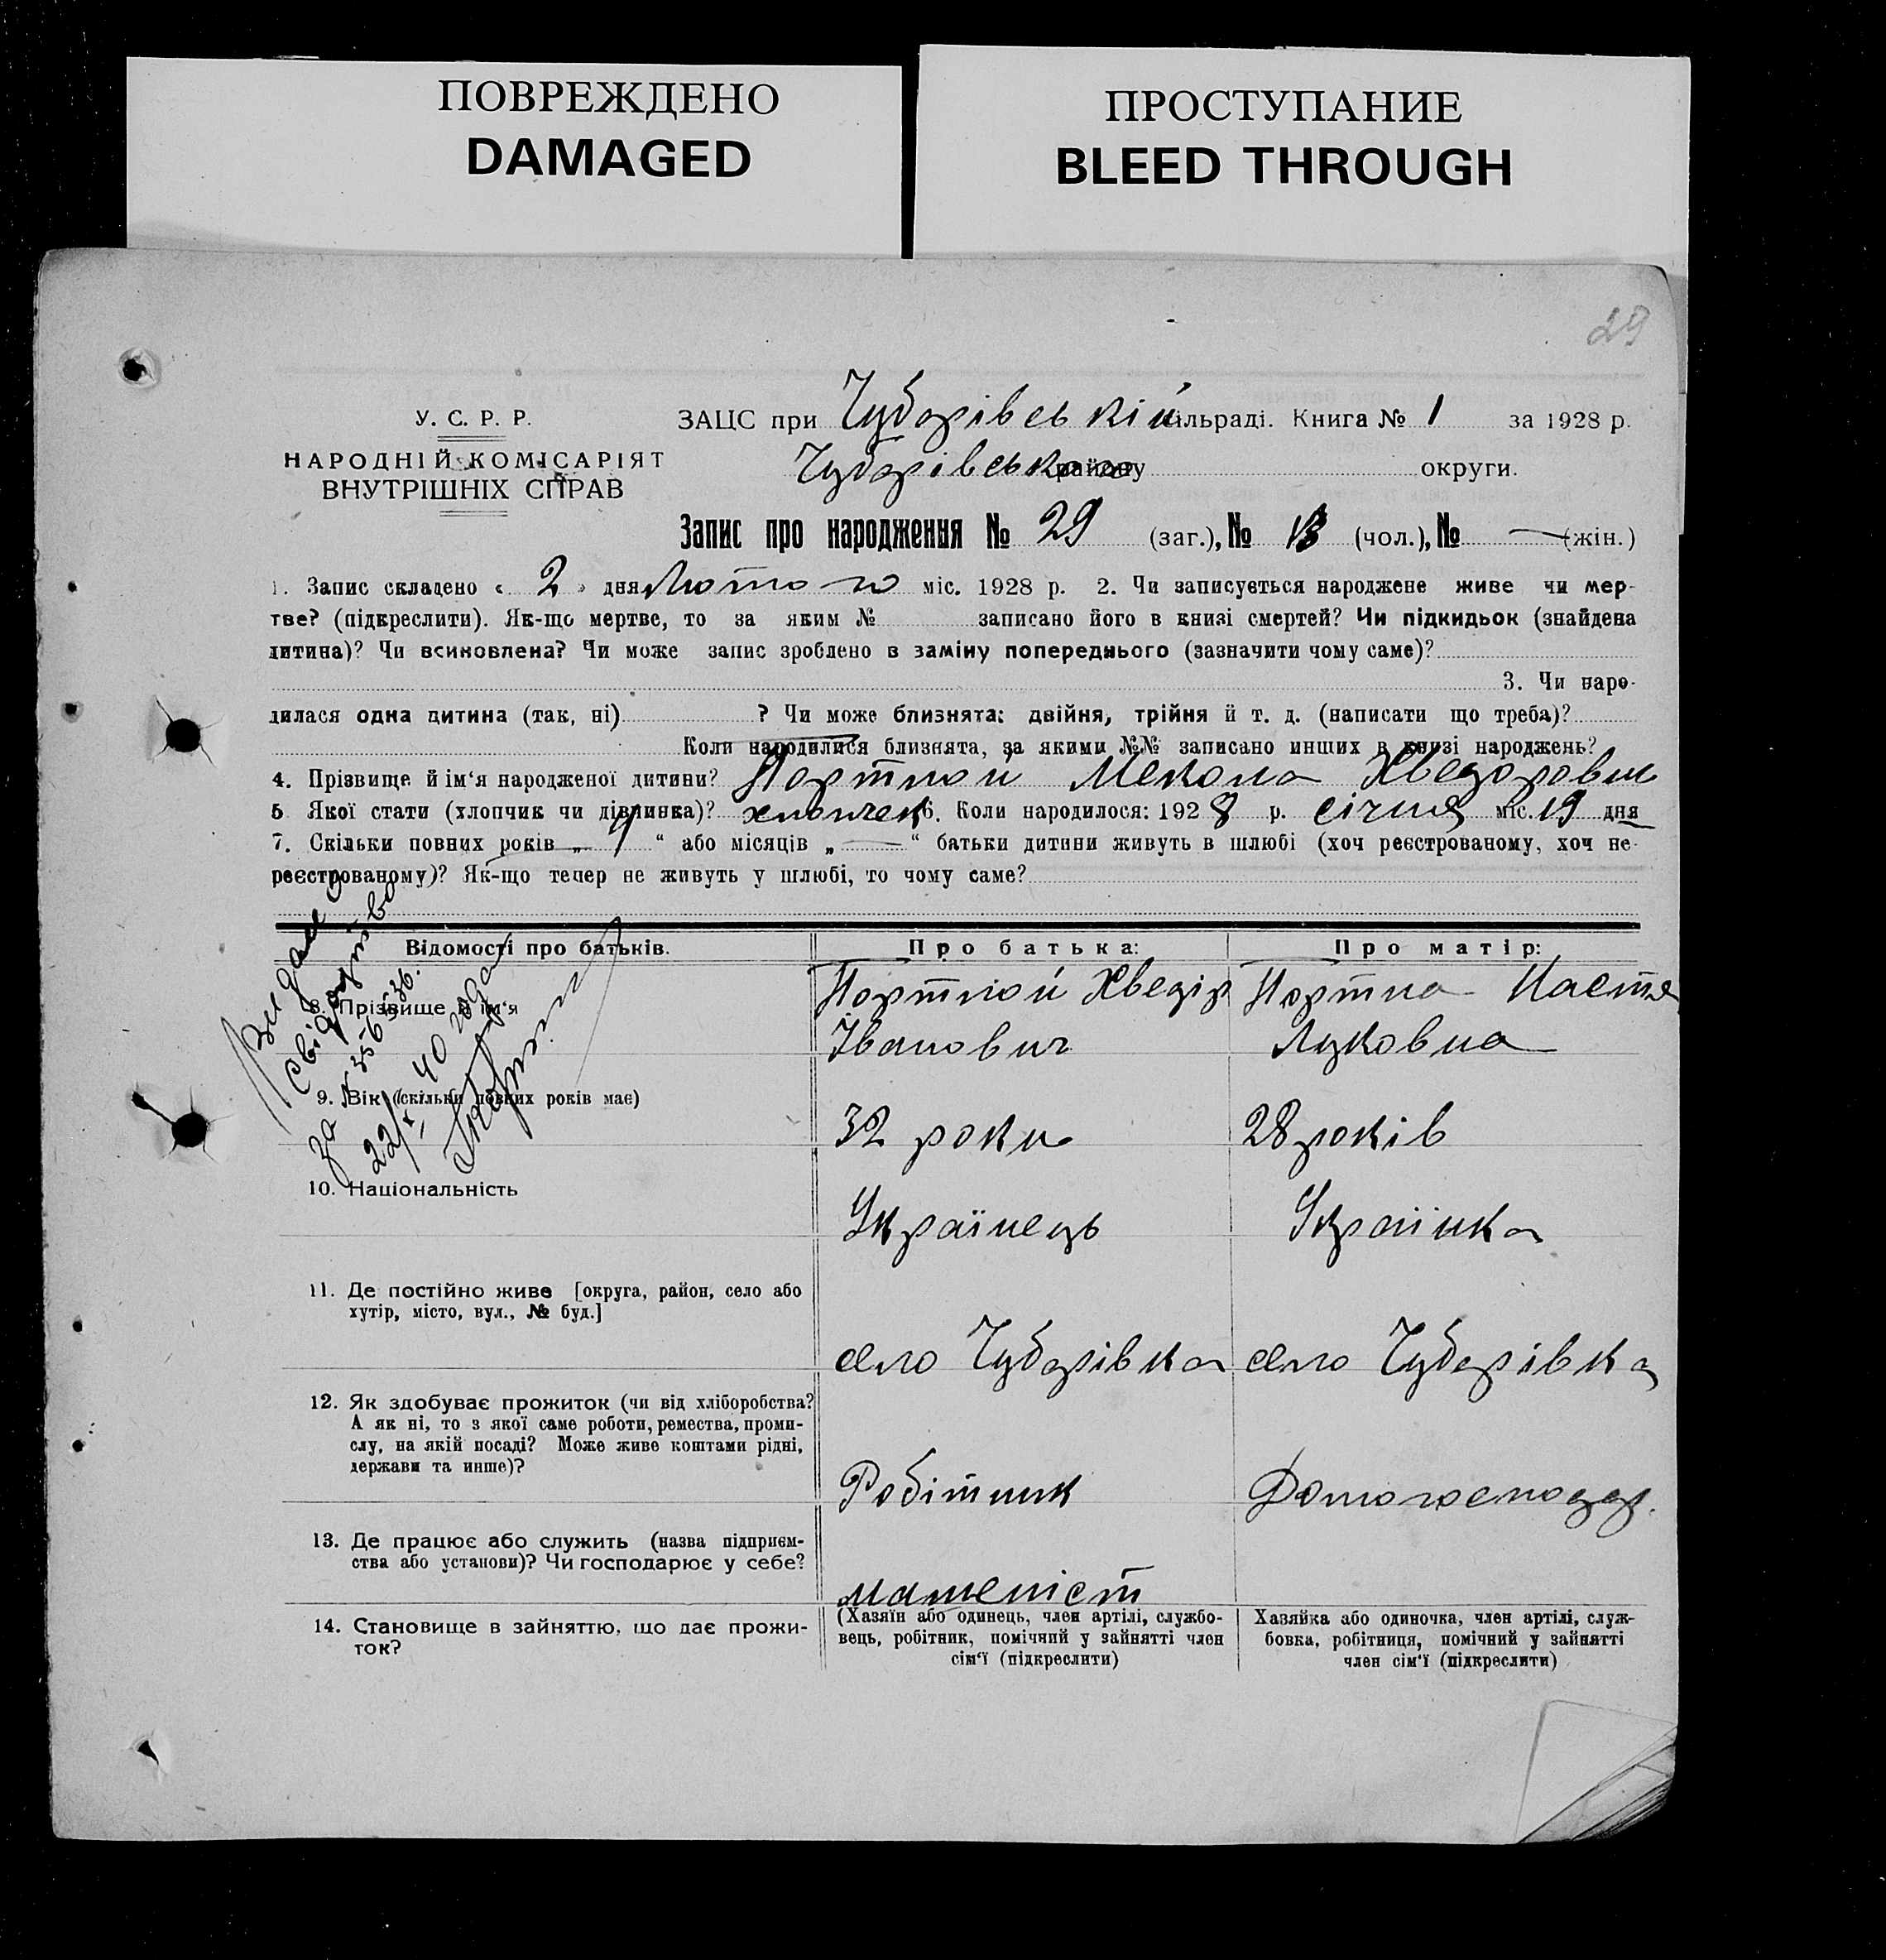 ПОВРЕЖДЕНО
DAMAGED
ПРОСТУПАНИЕ
BLEED THROUGH
29
У. С. Р. Р.
НАРОДНІЙ КОМІСАРІЯТ
ВНУТРІШНІХ СПРАВ
ЗАЦС при Чубарівській сільраді. Книга № 1 за 1928 р.
Чубарівського району округи.
Запис про народження № 29 (заг.), № 13 (чол.), № — (жін.)
1. Запис складено « 2 » дня Лютого міс. 1928 р. 2. Чи записується народжене живе чи мер-
тве? (підкреслити). Як-що мертве, то за яким № записано його в книзі смертей? Чи підкидьок (знайдена
дитина)? Чи всиновлена? Чи може запис зроблено в заміну попереднього (зазначити чому саме)?
3. Чи наро-
дилася одна дитина (так, ні) ? Чи може близнята: двійня, трійня й т. д. (написати що треба)?
Коли народилися близнята, за якими №№ записано инших в книзі народжень?
4. Прізвище й ім‘я народженої дитини? Портной Мекола Хведорович
5 Якої стати (хлопчик чи дівчинка)? хлопчек 6. Коли народилося: 1928 р. січня міс. 19 дня
7. Скільки повних років „ “ або місяців „ — “ батьки дитини живуть в шлюбі (хоч реєстрованому, хоч не-
реєстрованому)? Як-що тепер не живуть у шлюбі, то чому саме?
Відомості про батьків.
Про батька:
Про матір:
8. Прізвище й ім‘я
Портной Хведір
Іванович
Портна Настя
Луковна
9. Вік (скільки повних років має)
32 роки
28 років
10. Національність
Українець
Українка
11. Де постійно живе [округа, район, село або
хутір, місто, вул., № буд.]
село Чубарівка
село Чубарівка
12. Як здобуває прожиток (чи від хліборобства?
А як ні, то з якої саме роботи, ремества, проми-
слу, на якій посаді? Може живе коштами рідні,
держави та инше)?
Робітник
Домогосподар.
13. Де працює або служить (назва підприєм-
ства або установи)? Чи господарює у себе?
машеніст
14. Становище в зайняттю, що дає прожи-
ток?
(Хазяїн або одинець, член артілі, службо-
вець, робітник, помічний у зайнятті член
сім‘ї (підкреслити)
Хазяйка або одиночка, член артілі, служ-
бовка, робітниця, помічний у зайнятті
член сім‘ї (підкреслити)
Видане
свідоцтво
за №
22/X 40 года